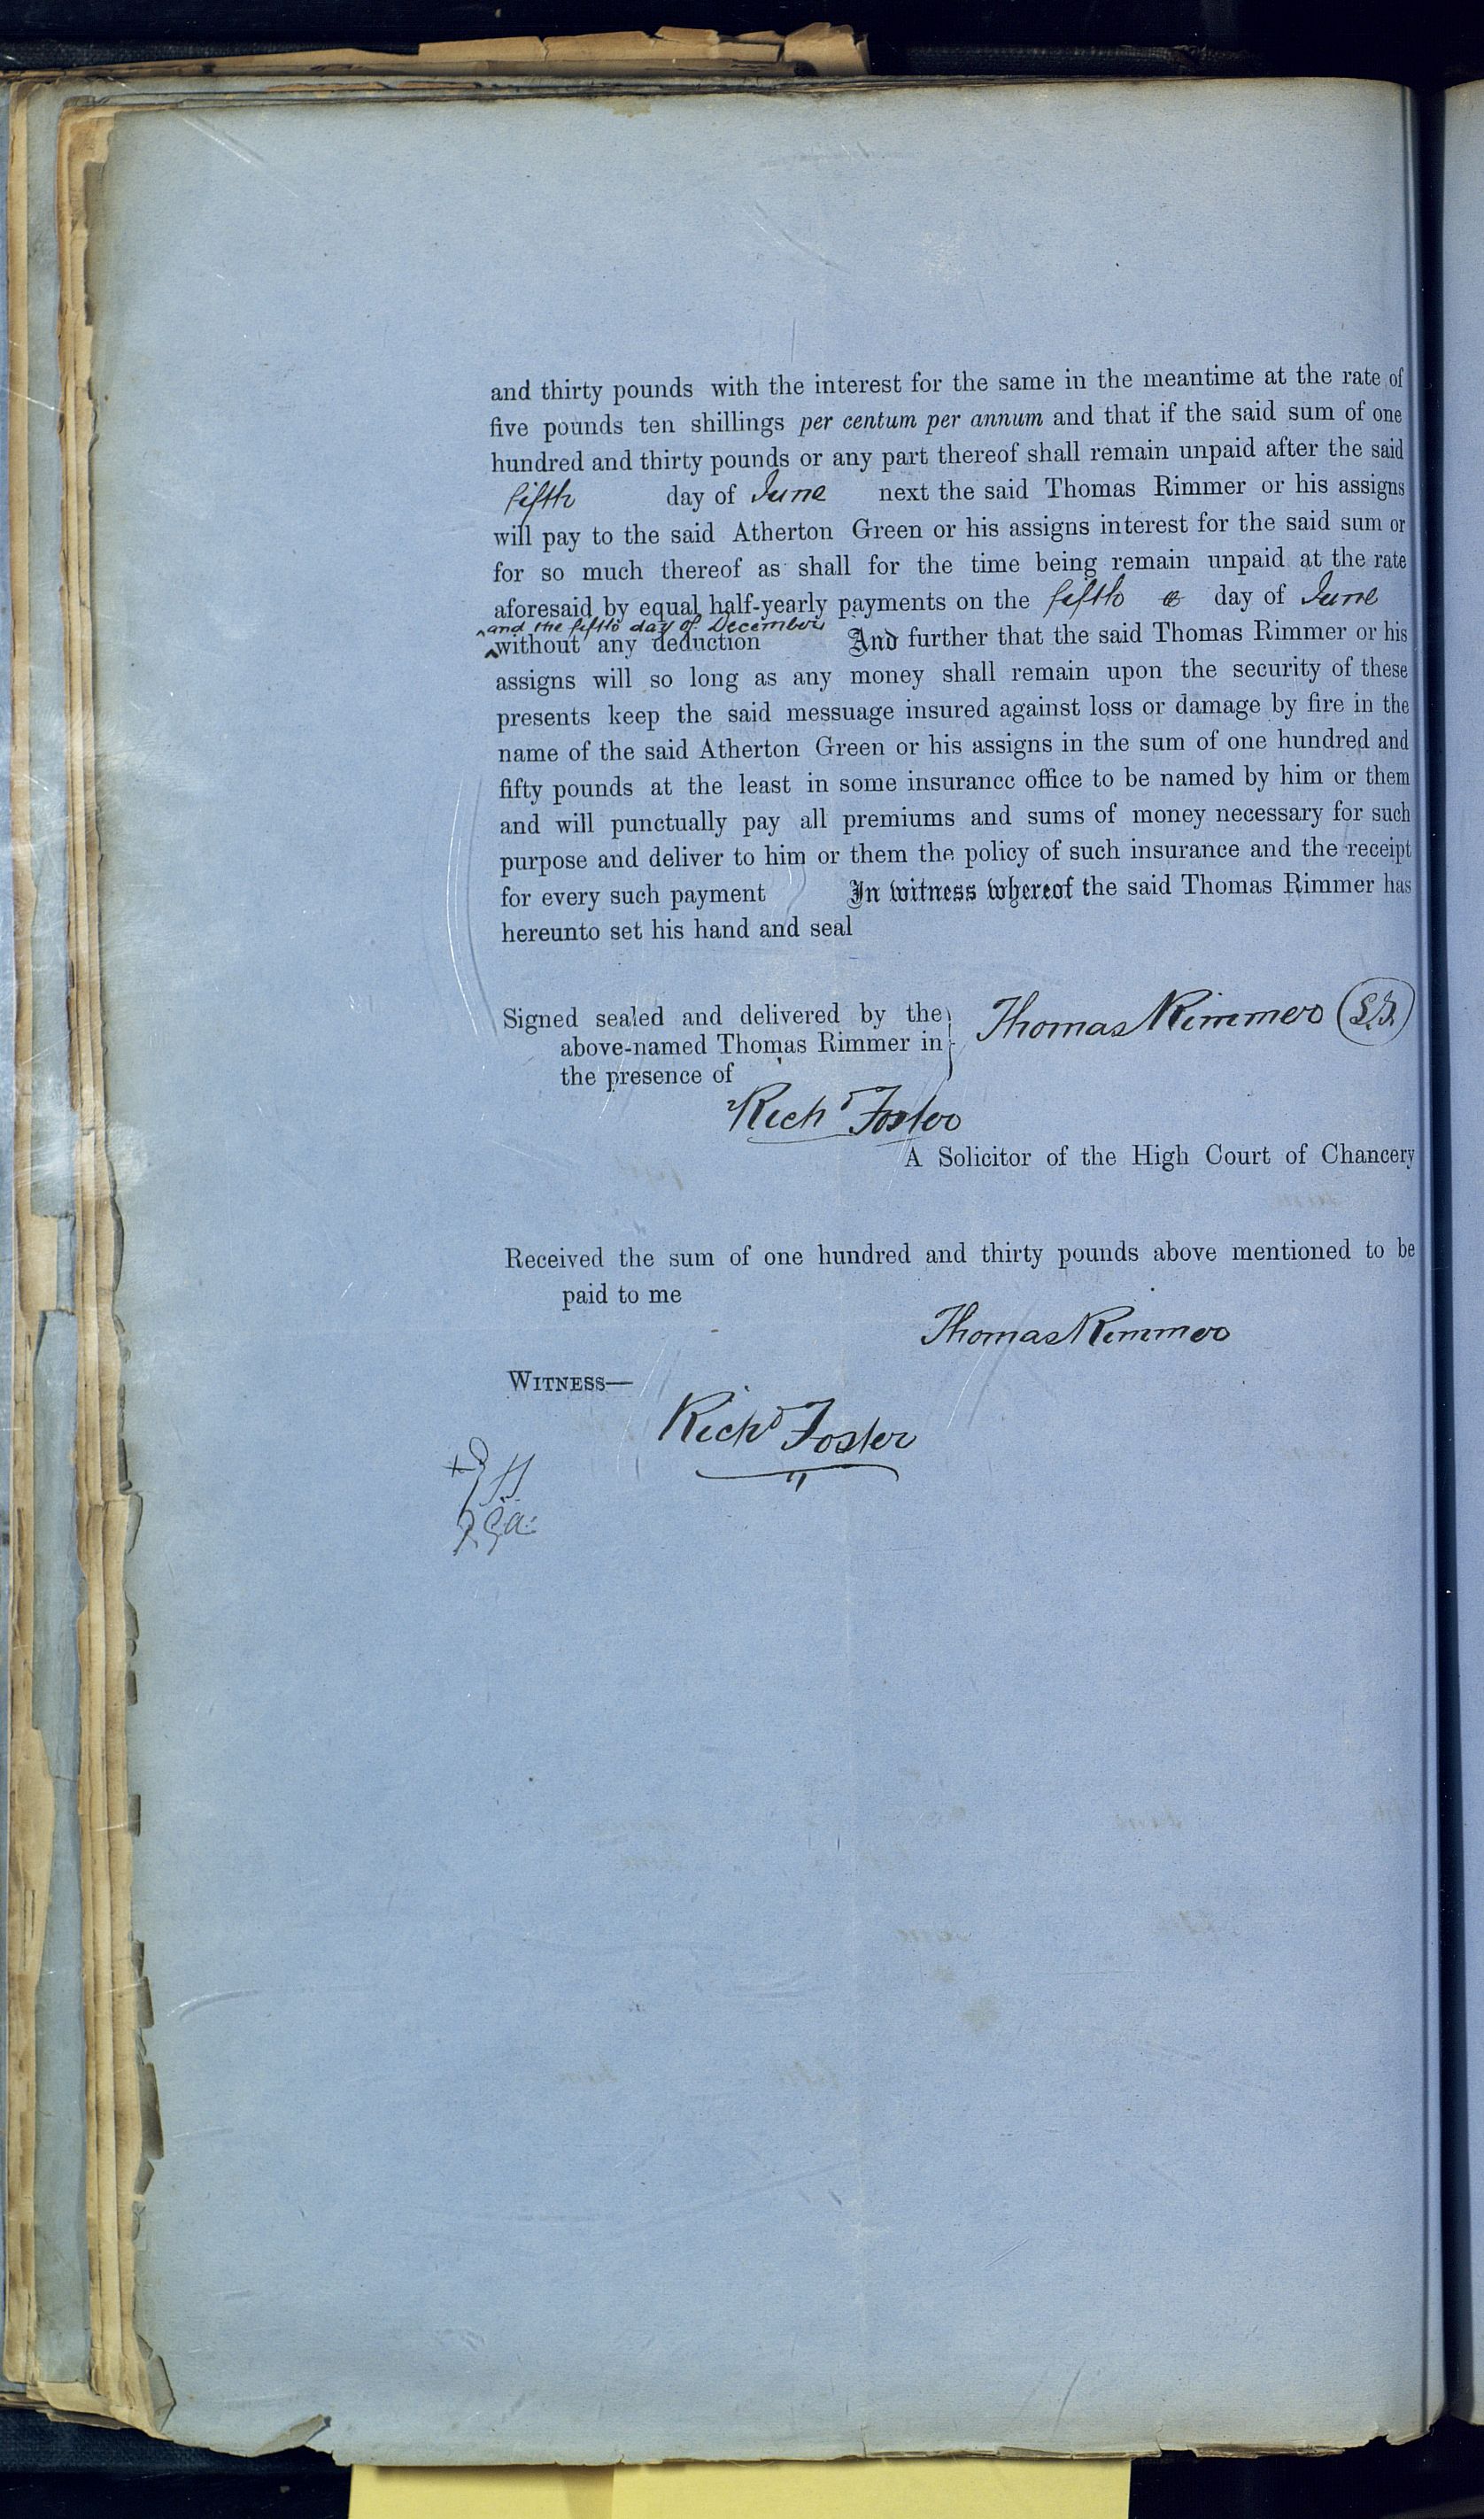 and thirty pounds with the interest for the same in the meantime at the rate of
five pounds ten shillings per centum per annum and that if the said sum of one
hundred and thirty pounds or any part thereof shall remain unpaid after the said
fifth day of June next the said Thomas Rimmer or his assigns
will pay to the said Atherton Green or his assigns interest for the said sum or
for so much thereof as shall for the time being remain unpaid at the rate
aforesaid by equal half-yearly payments on the fifth day of June
and the fifth day of December
without any deduction And further that the said Thomas Rimmer or his
assigns will so long as any money shall remain upon the security of these
presents keep the said messuage insured against loss or damage by fire in the
name of the said Atherton Green or his assigns in the sum of one hundred and
fifty pounds at the least in some insurance office to be named by him or them
and will punctually pay all premiums and sums of money necessary for such
purpose and deliver to him or them the policy of such insurance and the receipt
for every such payment In witness whereof the said Thomas Rimmer has
hereunto set his hand and seal
Signed sealed and delivered by the
above-named Thomas Rimmer in
the presence of
Thomas Rimmer L.S.
Richd Foster
A Solicitor of the High Court of Chancery
Received the sum of one hundred and thirty pounds above mentioned to be
paid to me
Thomas Rimmer
WITNESS—
Richd Foster